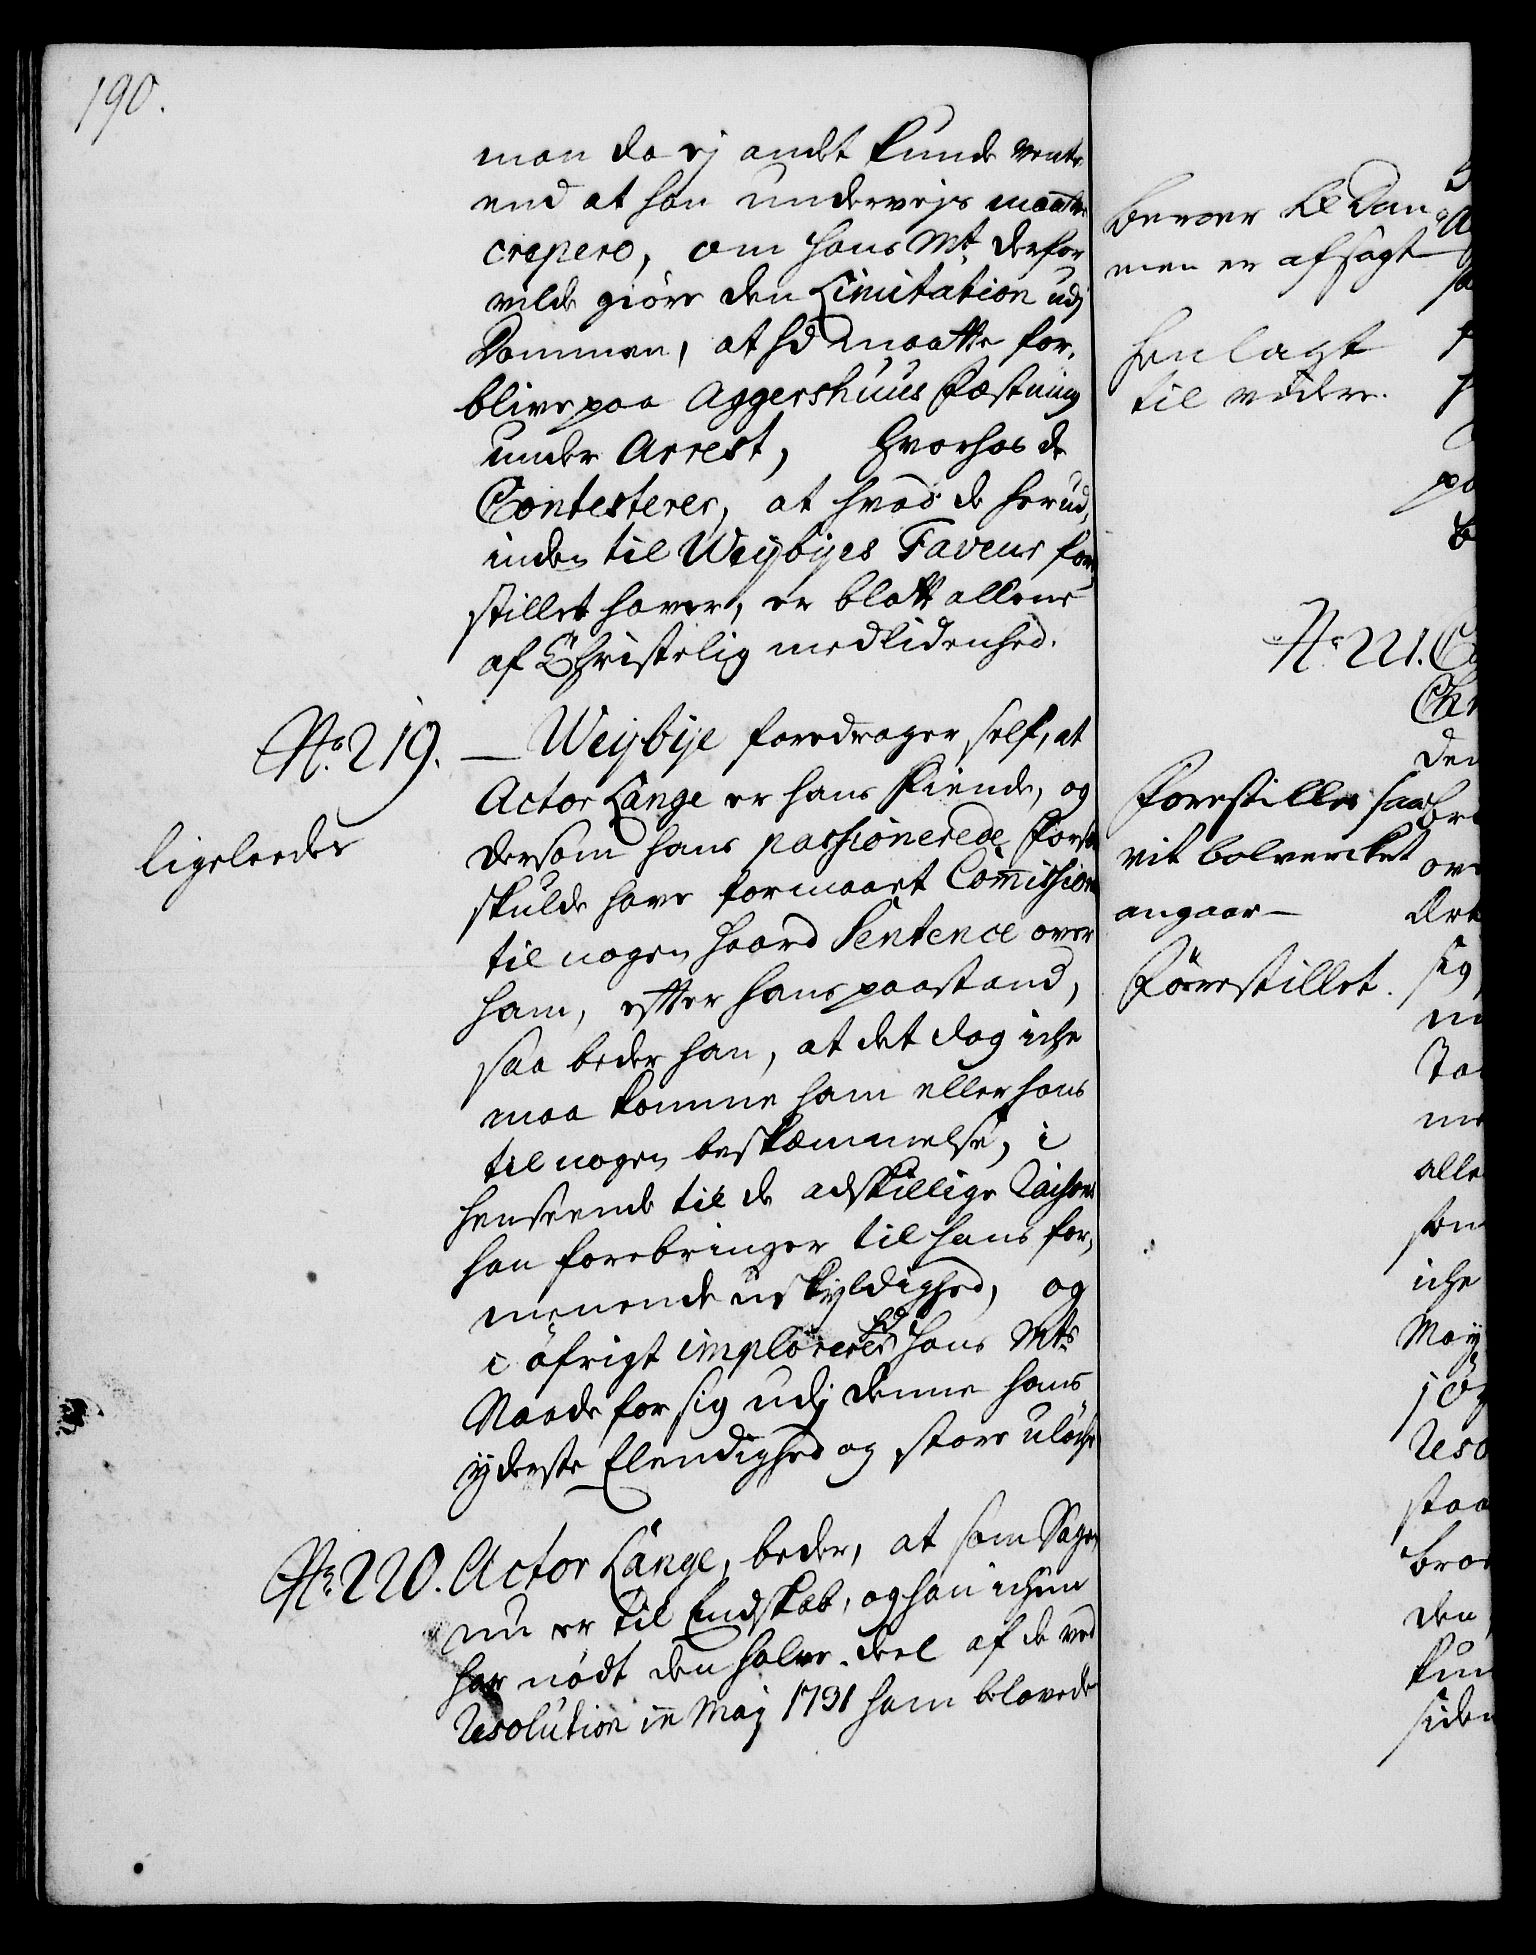 190.
man da ej andet kunde vente
end at han undervejs maatte
crepere, om hans Mt. derfor
vilde giøre den Limitation udj
Dommen, at hd maatte for,
blive paa Aggershuus Fæstning
under Arrest, hvorhos de
Contesterer, at hvad de herud,
inden til Weybyes Faveur fore,
stillet haver, er blott allene
af Christelig medlidenhed.
No. 219. — Weybye foredrager self, at
Actor Lange er hans Fiende, og
ligeleedes
dersom hans passionerede Forsæt
skulde have formaaet Commission
til nogen haard Sentence over
ham, effter hans paastand,
saa beder han, at det dog iche
maa komme ham eller hans
til nogen beskæmmelse, i
henseende til de adskillige Raisons
han forebringer til hans for,
menende uskyldighed, og
i øfrigt imploreres hd hans Mts
Naade for sig udj denne hans
yderste Elendighed og store uløche
No. 220. Actor Lange, beder, at som Sagen
nu er til Endskab, og han ichun
har nødt den halve deel af de ved
Resolution in Maj 1731 ham belovede
bevær
men er afsagt
henlagt
til videre.
No. 221.
Forestilles saa
vit bolvercket
angaar —
Forestillet.